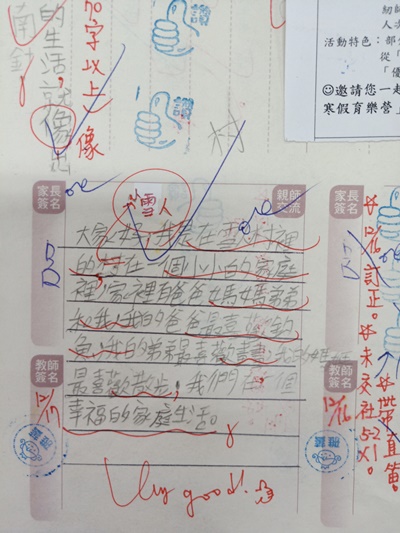 紉師
人次
活動特色：部分
從「
「優
☺邀請您一起
寒假育樂營
加字以上
像
的生活就像
南針
讚
讚
村
家長簽名
雪人
親師交流
大家好，我是在雪球裡
的
在一個小小白的家庭
裡，家裡有爸爸媽媽弟弟
和我，我的爸爸最喜歡釣
魚，我的弟弟最喜歡畫畫，我的媽媽
最喜歡散步，我們在一個
幸福的家庭生活。
Very good!
教師簽名
12/17
家長簽名
12/16訂正。
未交社52×1。
帶直笛。
教師簽名
12/16